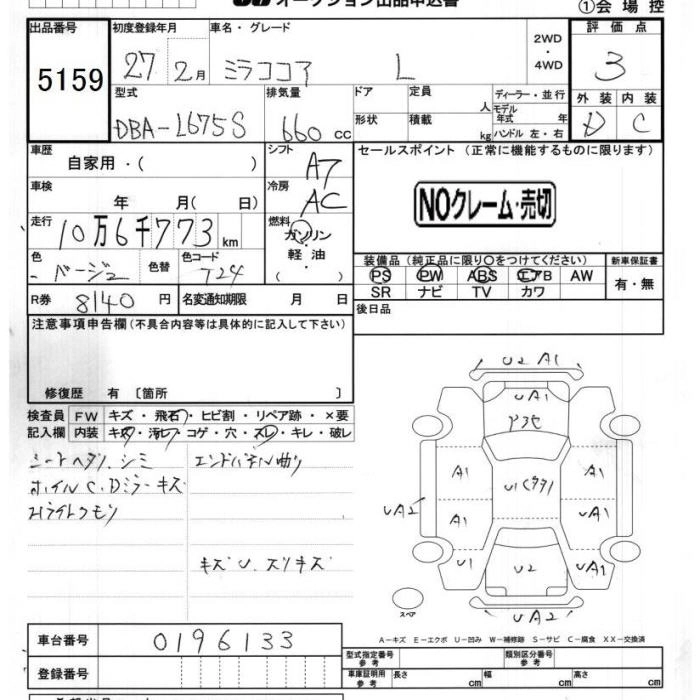 オークション出品申込書
①会場控
出品番号 5159
初度登録年月 27年 2月
車名・グレード ミラココア L
2WD・4WD
評価点 3
型式 DBA-L675S
排気量 660cc
ドア
形状
定員 人
積載 kg
ディーラー・並行
モデル年式 年
ハンドル 左・右
外装 D
内装 C
車歴 自家用・( )
シフト A7
セールスポイント(正常に機能するものに限ります)
NOクレーム・売切
車検 年 月( 日)
冷房 AC
走行 10万6千773km
燃料 ガソリン・軽油・( )
色 ベージュ
色替
色コード T24
装備品(純正品に限り○をつけてください)
新車保証書
PS PW ABS エアB AW
SR ナビ TV カワ
有・無
R券 8140円
名変通知期限 月 日
後日品
注意事項申告欄(不具合内容等は具体的に記入して下さい)
修復歴 有 〔箇所 〕
検査員記入欄
FW キズ・飛石・ヒビ割・リペア跡・×要
内装 キズ・汚レ・コゲ・穴・スレ・キレ・破レ
シートヘタリ、シミ
エンドパネル曲り
ホイルC.Dミラーキズ
Hライトクモリ
キズU、スリキズ
U2 A1
UA1
A1 A1
UA2
A1 UA1
U1 U2 UA1
UA2
スペア
A-キズ E-エクボ U-凹み W-補修跡 S-サビ C-腐食 XX-交換済
車台番号 0196133
型式指定番号 参考
類別区分番号 参考
登録番号
車庫証明用 参考 長さ cm 幅 cm 高さ cm